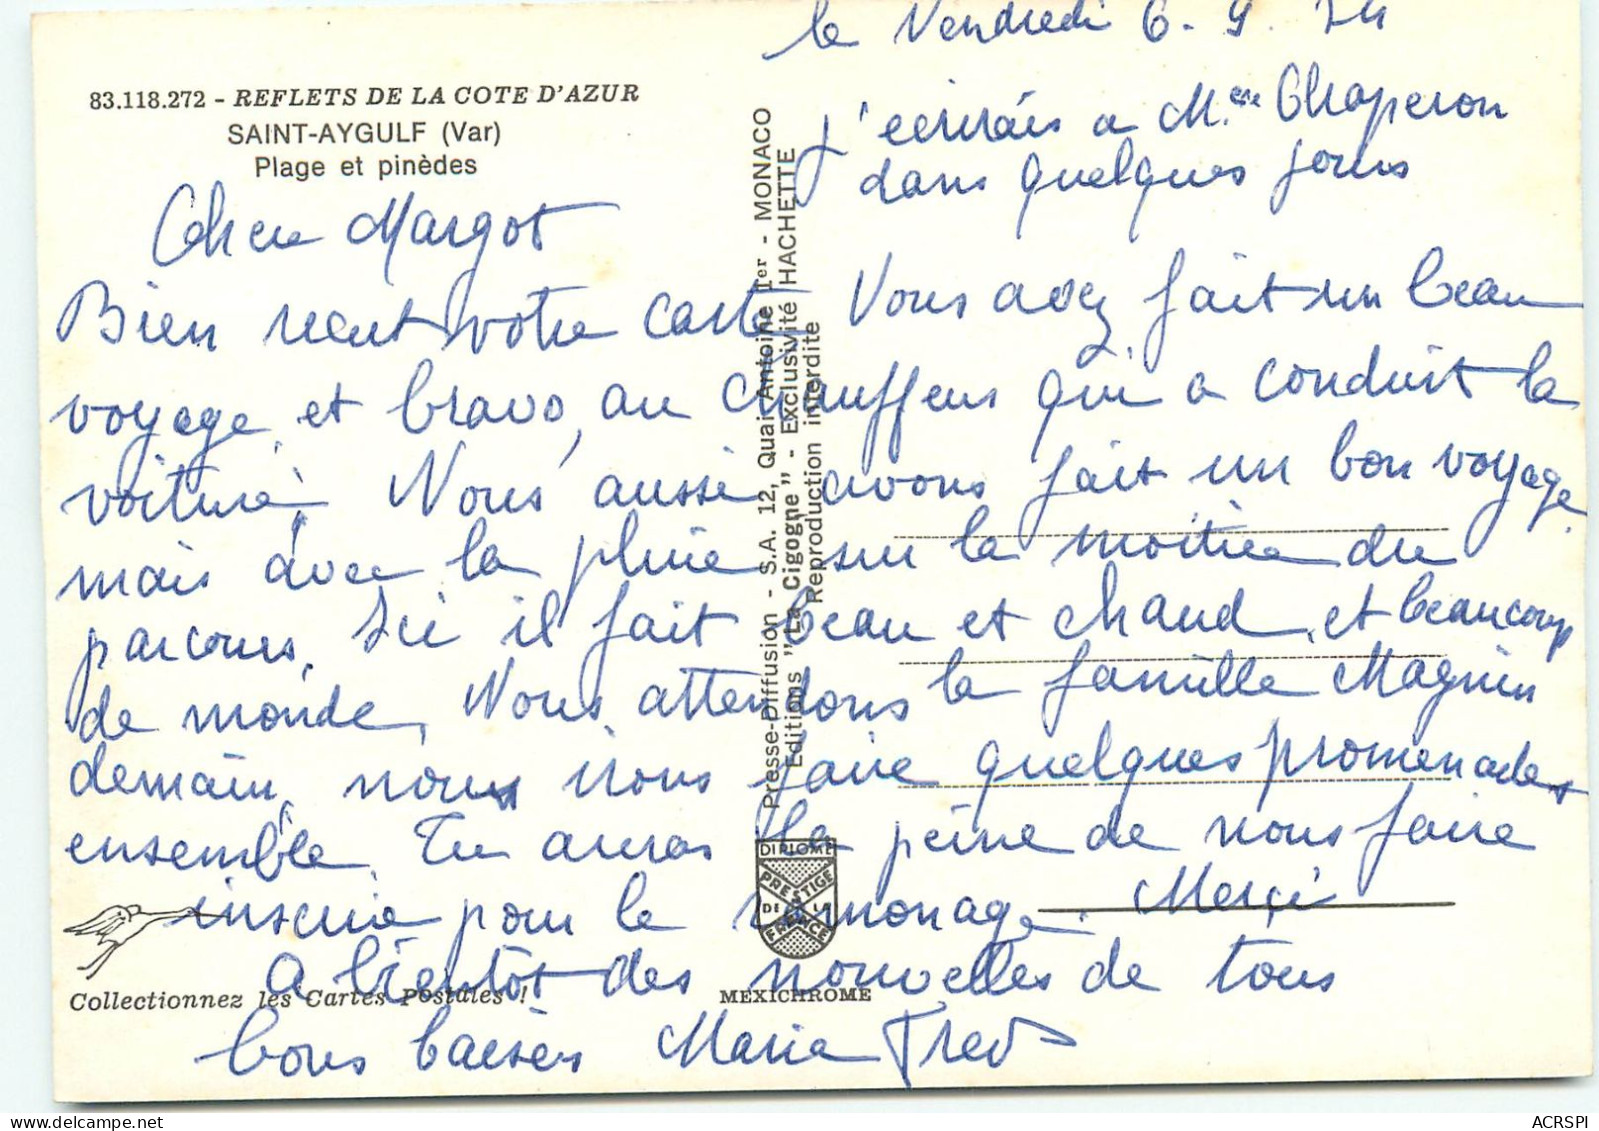 le Vendredi 6-9.74
J'ecrirais a Mme Chaperon
dans quelques jours
83.118.272 - REFLETS DE LA COTE D'AZUR
SAINT-AYGULF (Var)
Plage et pinèdes
Chere Margot
Bien recut votre carte Vous avez fait un beau
voyage et bravo, au chauffeur qui a conduit la
voiture. Nous aussi avons fait un bon voyage
mais avec la pluie sur la moitiee du
parcours. Ici il fait beau et chaud, et beaucoup
de monde, Nous attendons la famille Magnin
demain, nous irons faire quelques promenades
ensemble. Tu auras la peine de nous faire
inscrire pour le ramonage. Merçi
A bientôt des nouvelles de tous
bons baisers Marie Fred
Presse-Diffusion - S.A. 12, Quai Antoine Ier - MONACO
Editions "La Cigogne" - Exclusivité HACHETTE
Reproduction interdite
DIPLOME
PRESTIGE
DE LA
FRANCE
Collectionnez les Cartes Postales !
MEXICHROME
ACRSPI